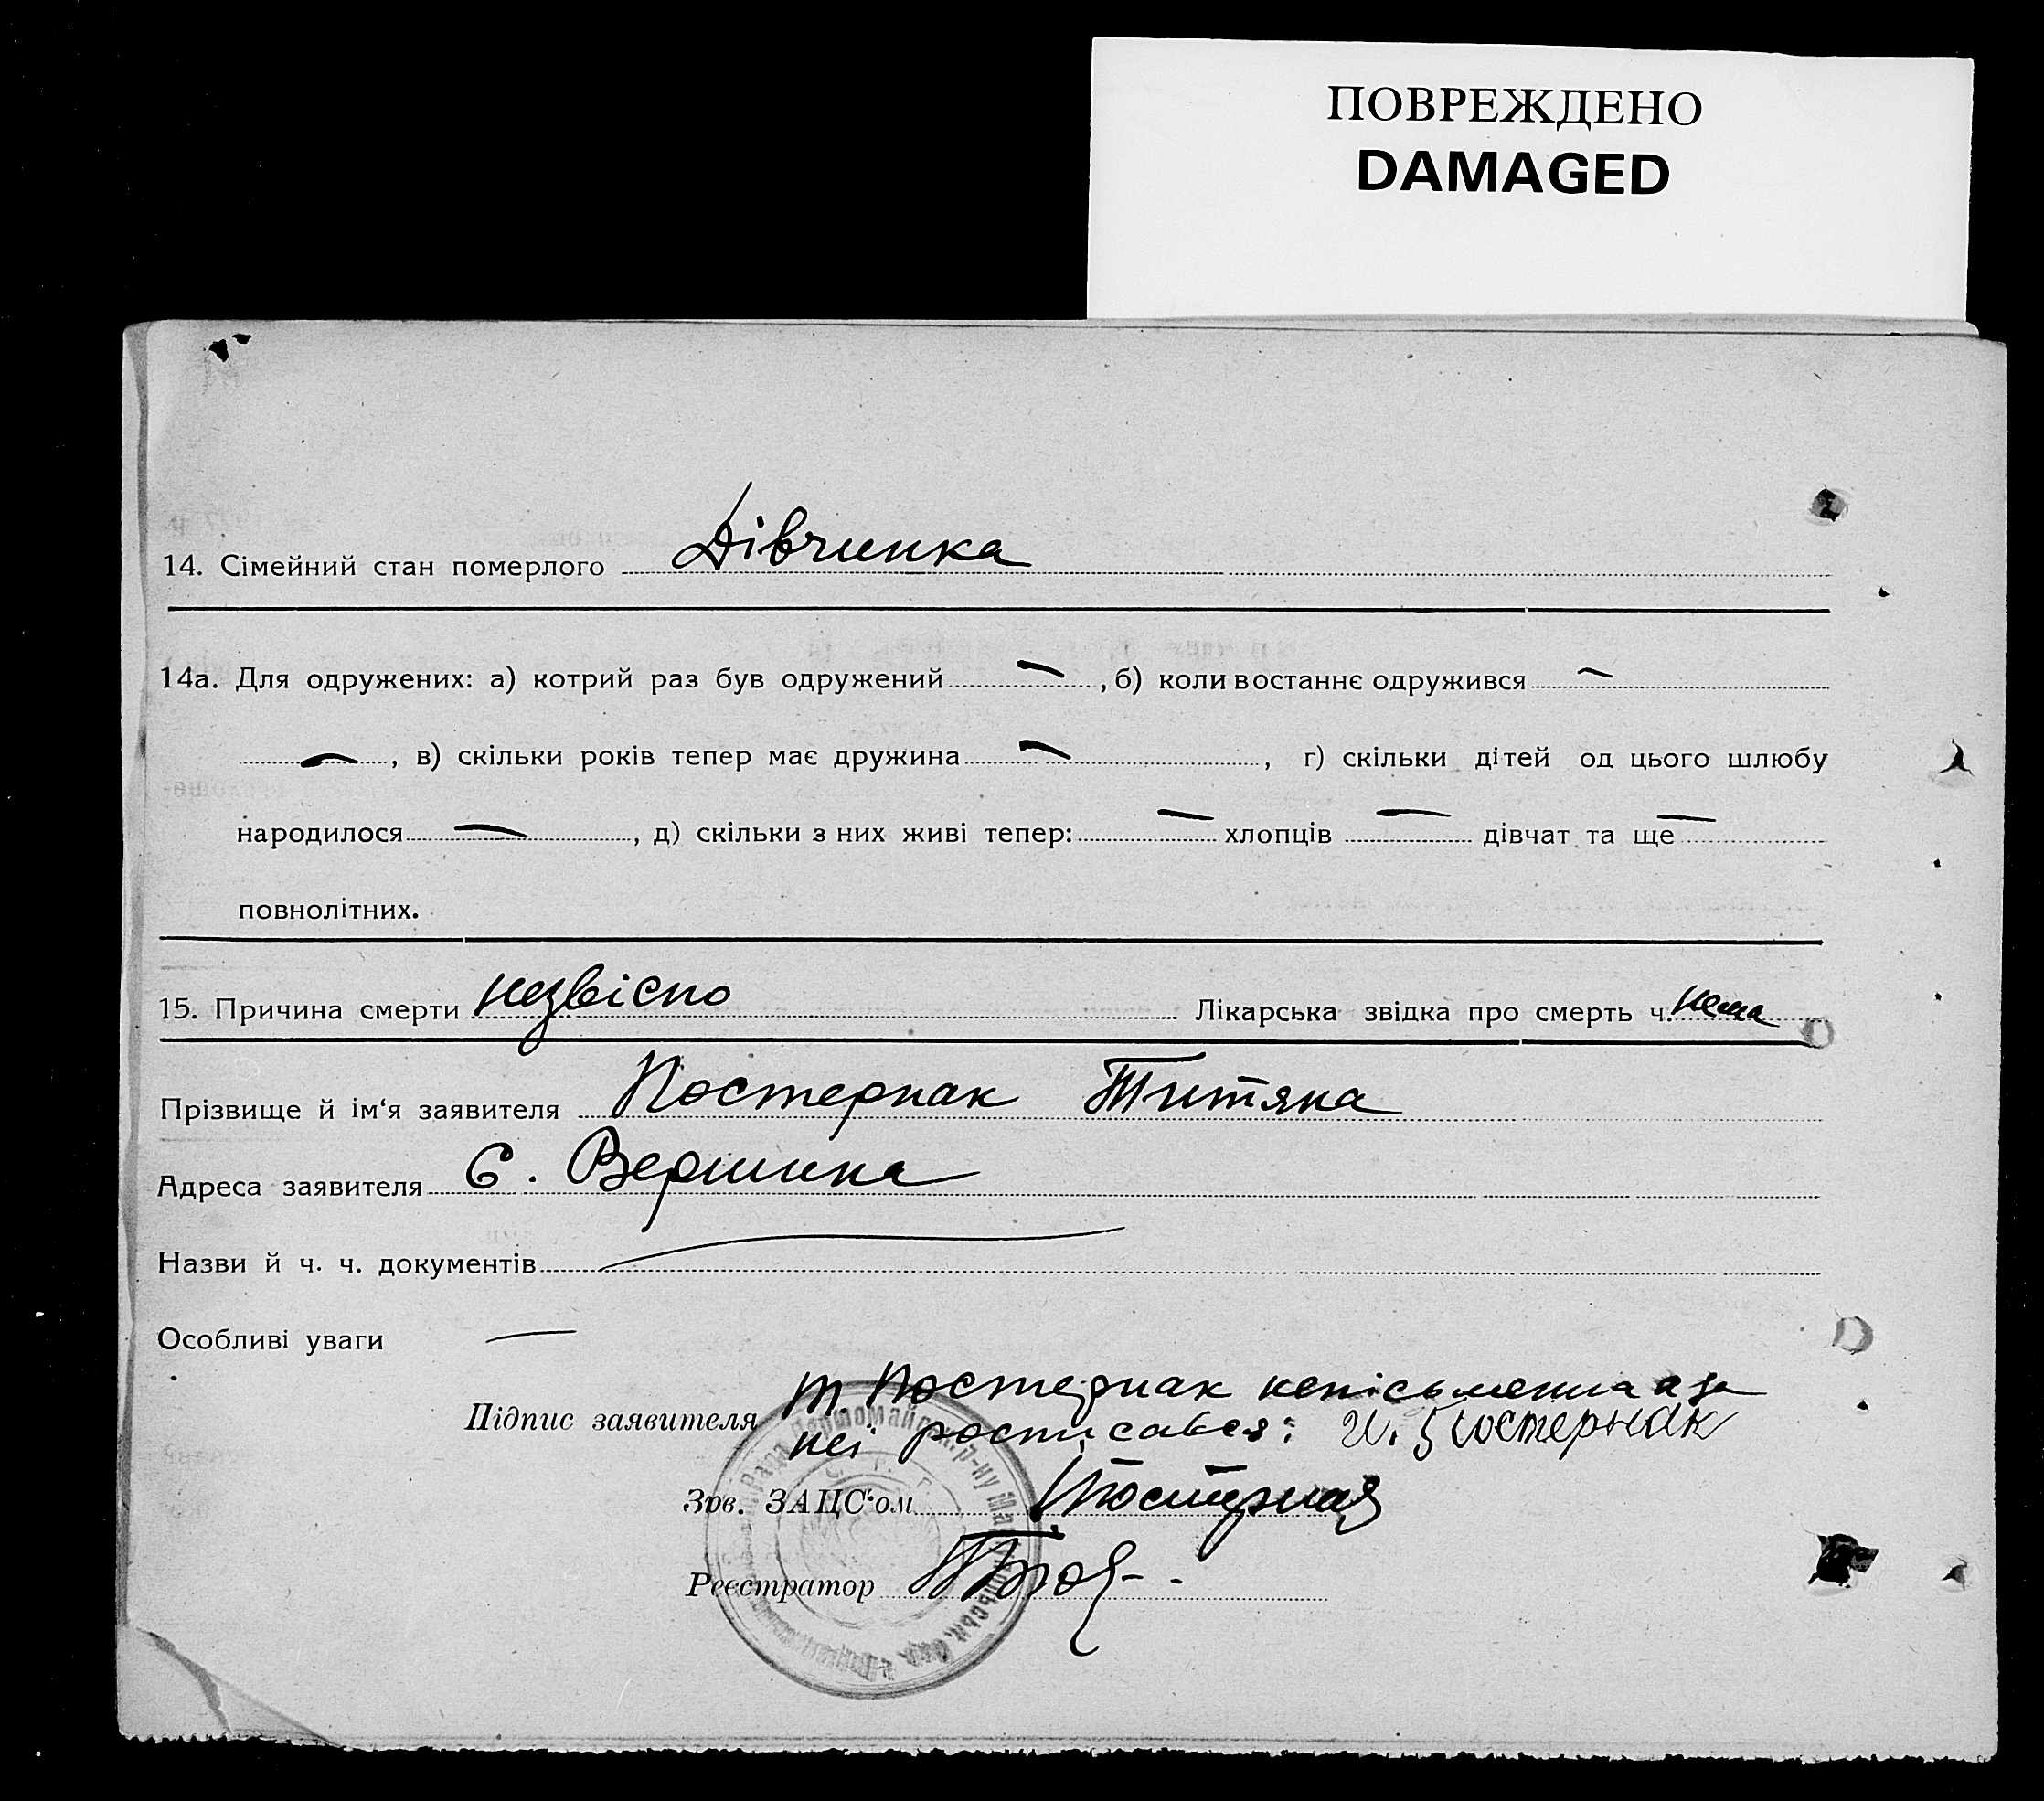 ПОВРЕЖДЕНО
DAMAGED
14. Сімейний стан померлого Дівчинка
14а. Для одружених: а) котрий раз був одружений —, б) коли востаннє одружився —
—, в) скільки років тепер має дружина —, г) скільки дітей од цього шлюбу
народилося —, д) скільки з них живі тепер: — хлопців — дівчат та ще —
повнолітних.
15. Причина смерти незвісно Лікарська звідка про смерть ч. нема
Прізвище й ім'я заявителя Постернак Титяна
Адреса заявителя С. Вершина
Назви й ч. ч. документів —
Особливі уваги —
Підпис заявителя т. Постернак неписьменна а за
неі росписався: И. Постернак
Зав. ЗАЦС'ом
Реєстратор